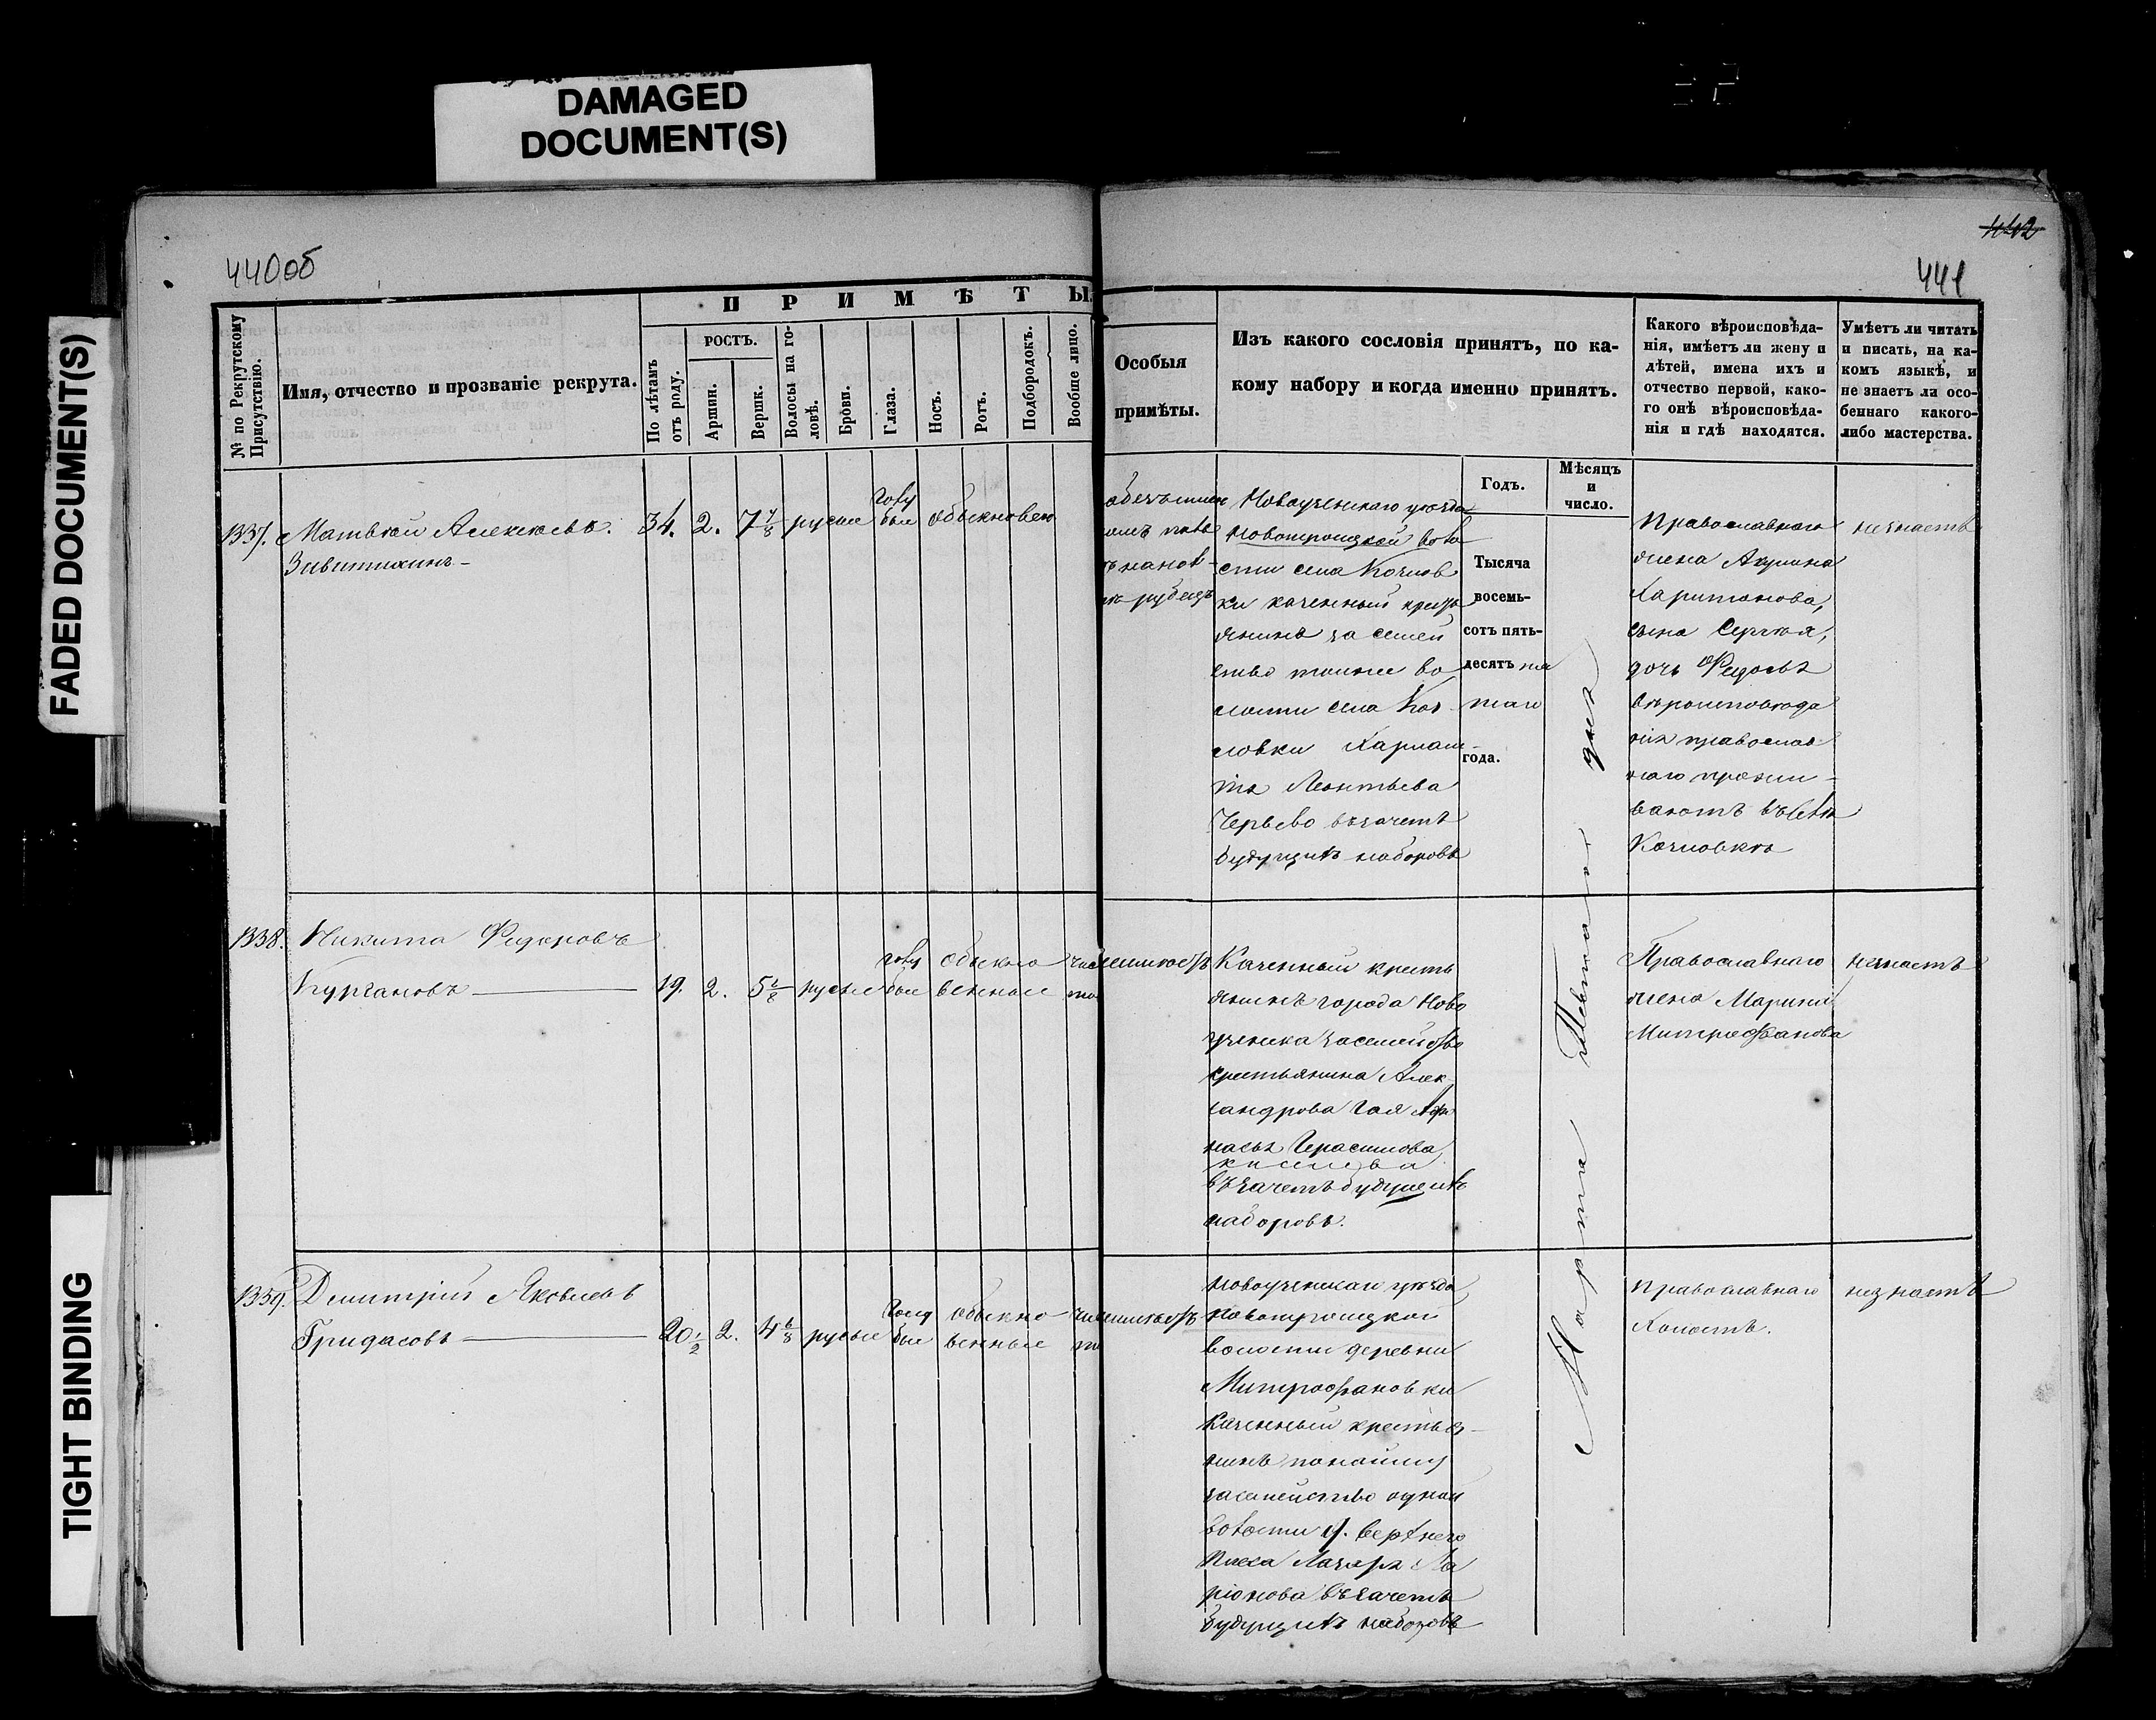 DAMAGED
DOCUMENT(S)
FADED DOCUMENT(S)
TIGHT BINDING
440об
442
441
№ по Рекрутскому Присутствію.
Имя, отчество и прозваніе рекрута.
ПРИМѢТЫ.
По лѣтамъ отъ роду.
РОСТЪ.
Аршин.
Вершк.
Волосы на го-
ловѣ.
Брови.
Глаза.
Носъ.
Ротъ.
Подбородокъ.
Вообще лицо.
Особыя
примѣты.
Изъ какого сословія принятъ, по ка-
кому набору и когда именно принятъ.
Годъ.
Мѣсяцъ
и
число.
Какого вѣроисповѣда-
нія, имѣетъ ли жену и
дѣтей, имена ихъ и
отчество первой, како-
го онѣ вѣроисповѣда-
нія и гдѣ находятся.
Умѣетъ ли читать
и писать, на ка-
комъ языкѣ, и
не знаетъ ли осо-
беннаго какого-
либо мастерства.
1337.
Матвѣй Алексѣевъ
34. 2. 7 7/8 русые голу
бые обыкновен
рубецъ
Новоузенскаго уѣзда
Новотроицкой воло
сти села Козлов
ки казенный кресть
янинъ за семей
ство тоиже во
лости села Коз
ловки Харлам
пія Леонтьева
въ зачетъ
будущихъ наборовъ
Тысяча
восемь-
сотъ пять-
десятъ пя
таго
года.
Марта Девятаго дня
Православнаго
жена Акулина
Харитонова,
сына Сергѣя,
дочь Федосья
вѣроисповѣда
нія православ
наго прожи-
ваютъ въ селѣ
Козловкѣ
незнаетъ
1338.
Никита Федоровъ
Кургановъ
19. 2. 5 6/8 русые голу
бые обыкно
венные чис
то
Казенный кресть
янинъ города Ново
узенска за семейство
крестьянина Алек
сандрова Гая Афа
насья Герасимова
Киселева
въ зачетъ будущихъ
наборовъ.
Православнаго
жена Марина
Митрофанова
незнаетъ
1339.
Дмитрій Яковлевъ
Гридасовъ
20 1/2 2. 4 6/8 русые голу
бые обыкно
венные чис
то
Новоузенскаго уѣзда
Новотроицкой
волости деревни
Митрофановки
казенный крестья-
нинъ по найму
за семейство одной
волости д. Верхняго
Лазаря Ла
ріонова въ зачетъ
будущихъ наборовъ
Православнаго
Холостъ.
незнаетъ